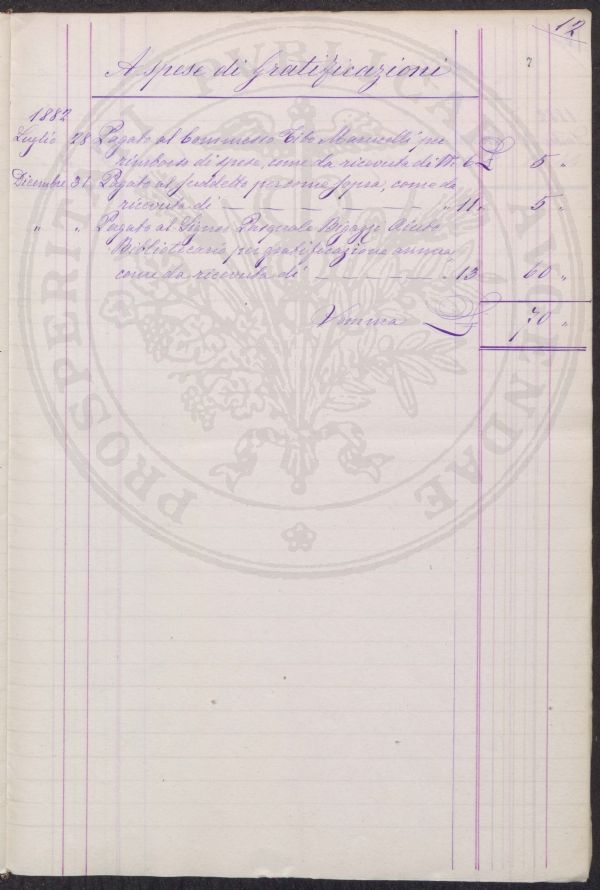 12
A spese di Gratificazioni
1882
Luglio 28 Pagato al Commesso Tito Marucelli per
rimborso di spese, come da ricevuta di N. 6 L 5 "
Dicembre 31 Pagato al suddetto per come sopra, come da
ricevuta di — — — — — " 11 " 5 "
" " Pagato al Signor Pasquale Bigazzi Aiuto
Bibliotecario per gratificazione annua
come da ricevuta di — — — — " 13 60 "
Somma L 70 "
PROSPERITATI PVBLICAE AVGENDAE